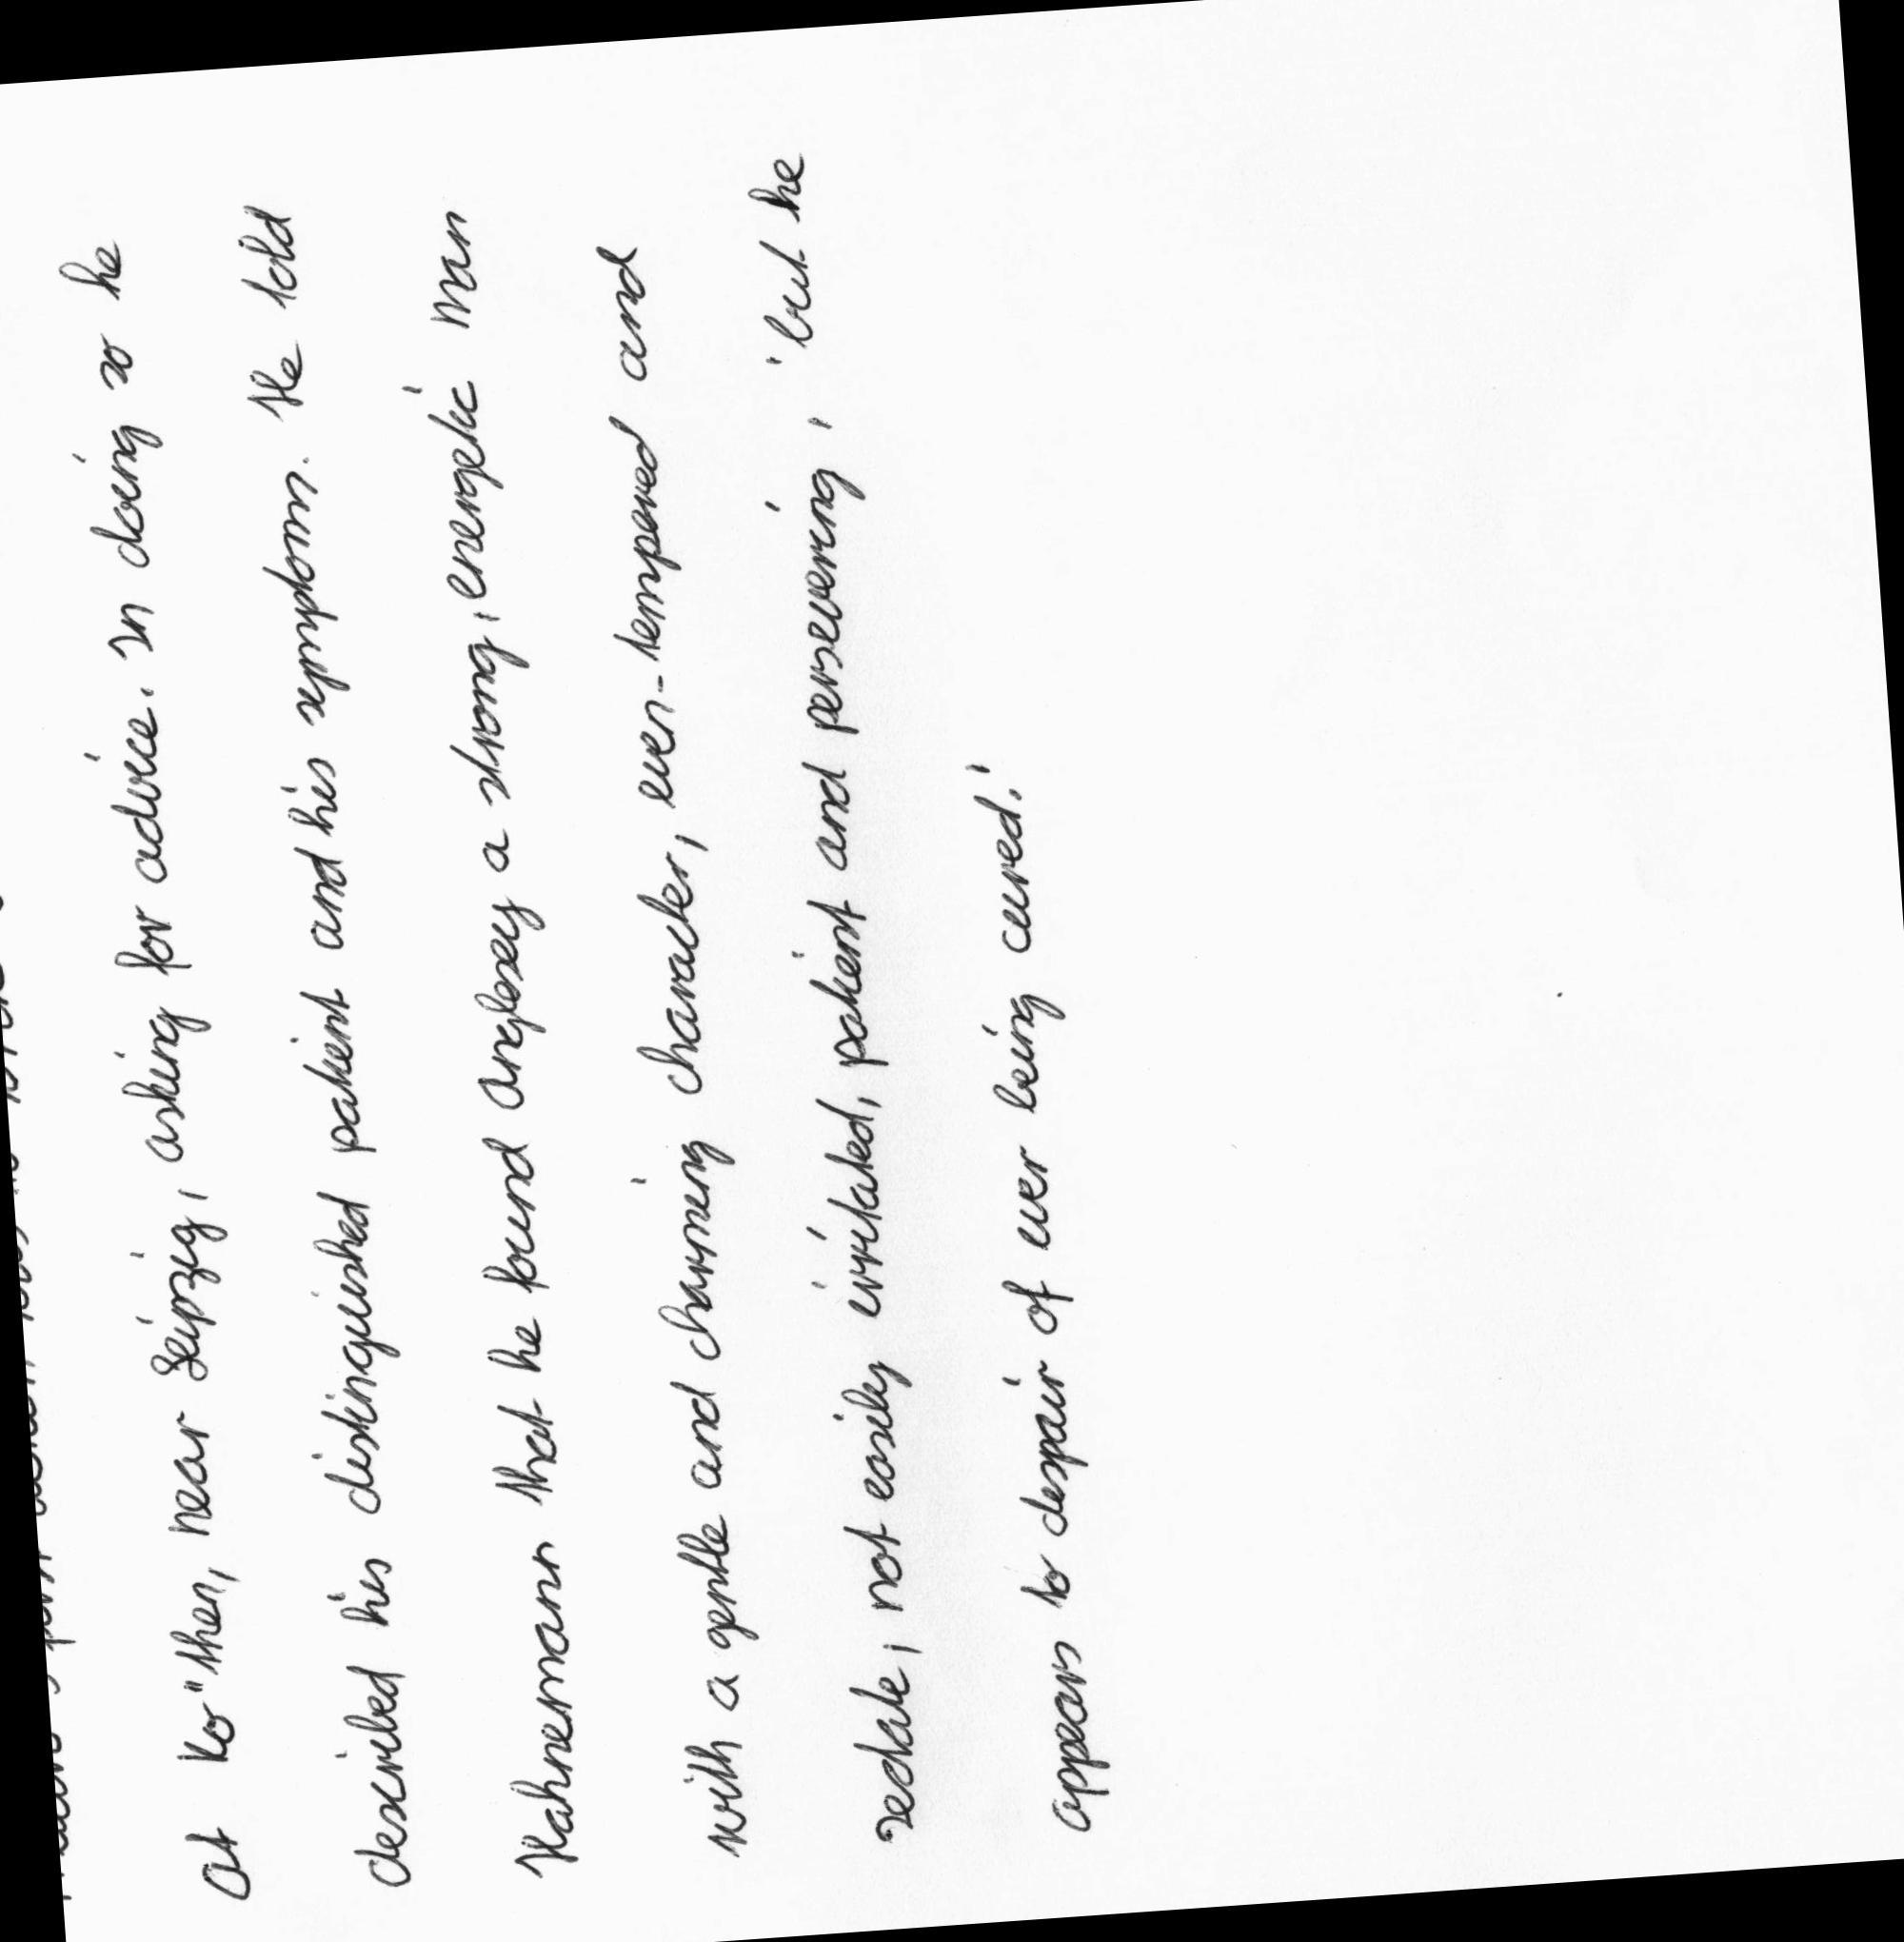 at Kö"then, near Leipzig, asking for advice. In doing so he
described his distinguished patient and his symptoms. He told
Hahnemann that he found Anglesey a strong, energetic' man
with a gentle and charming character, even-tempered and
sedate, not easily irritated, patient and persevering', 'but he
appears to despair of ever being cured.'